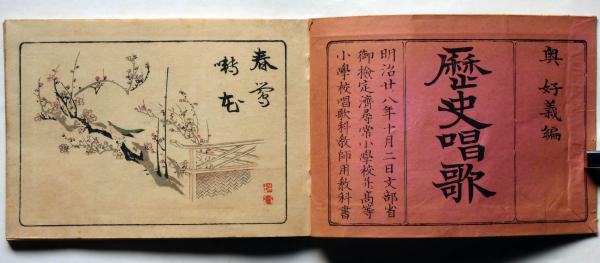 奥好義編
歴史唱歌
明治廿八年十月二日文部省
御検定済尋常小學校並高等
小學校唱歌科教師用教科書
春鶯
囀花